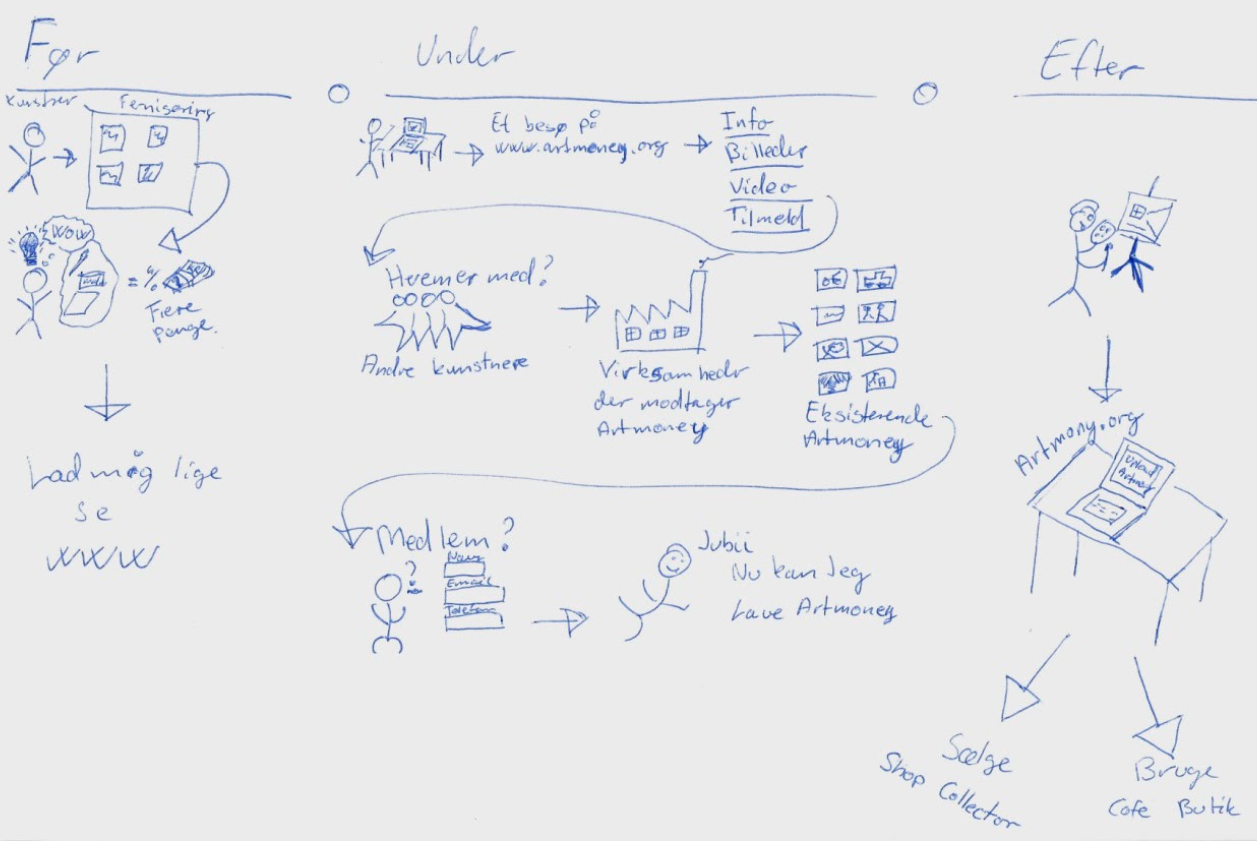 Før
Kunstner
Fernisering
WOW
= %
Flere
penge.
Lad mig lige
se
WWW
Under
Et besø på
www.artmoney.org
Info
Billeder
Video
Tilmeld
Hvem er med?
Andre kunstnere
Virksomheder
der modtager
Artmoney
Eksisterende
Artmoney
Medlem?
?
Navn
Email
Telefon
Jubii
Nu kan Jeg
Lave Artmoney
Efter
Artmony.org
Upload
Artmoney
Sælge
Shop Collector
Bruge
Cafe Butik